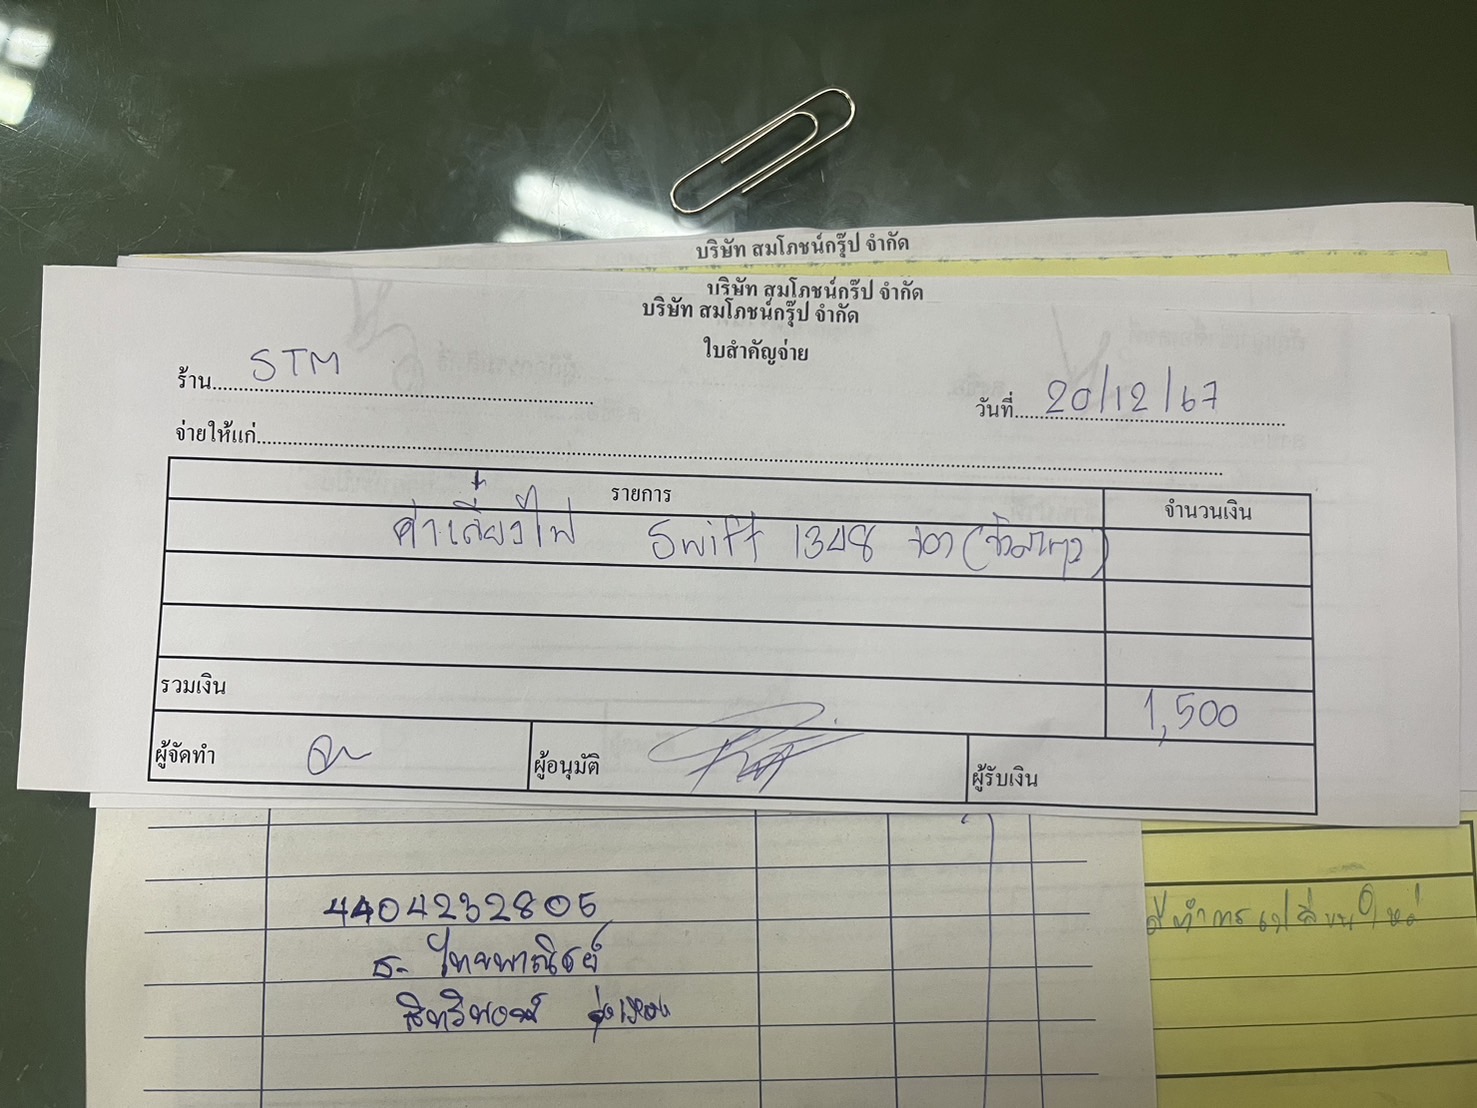 บริษัท สมโภชน์กรุ๊ป จำกัด
บริษัท สมโภชน์กรุ๊ป จำกัด
บริษัท สมโภชน์กรุ๊ป จำกัด
ใบสำคัญจ่าย
ร้าน STM
วันที่ 20/12/67
จ่ายให้แก่
รายการ จำนวนเงิน
ค่าเลี่ยงไฟ Swift 1348
รวมเงิน 1,500
ผู้จัดทำ ผู้อนุมัติ ผู้รับเงิน
4404232805
ธ. ไทยพาณิชย์